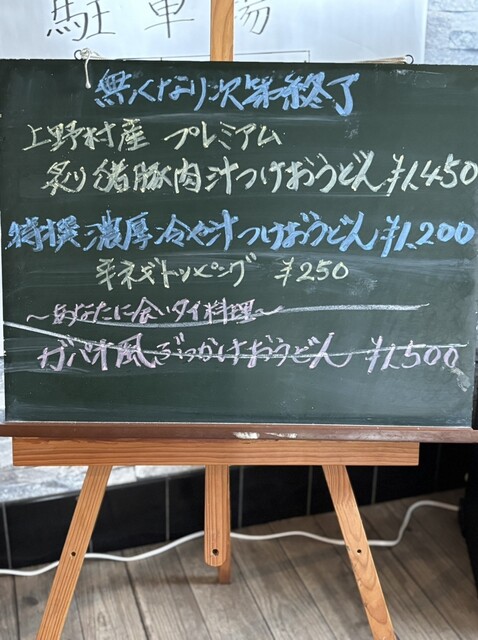 駐車場
無くなり次第終了
上野村産 プレミアム
炙り猪豚肉汁つけおうどん ¥1,450
特撰 濃厚冷や汁つけおうどん ¥1,200
辛ネギトッピング ¥250
〜あなたに会いタイ料理〜
ガパオ風ぶっかけおうどん ¥1,500